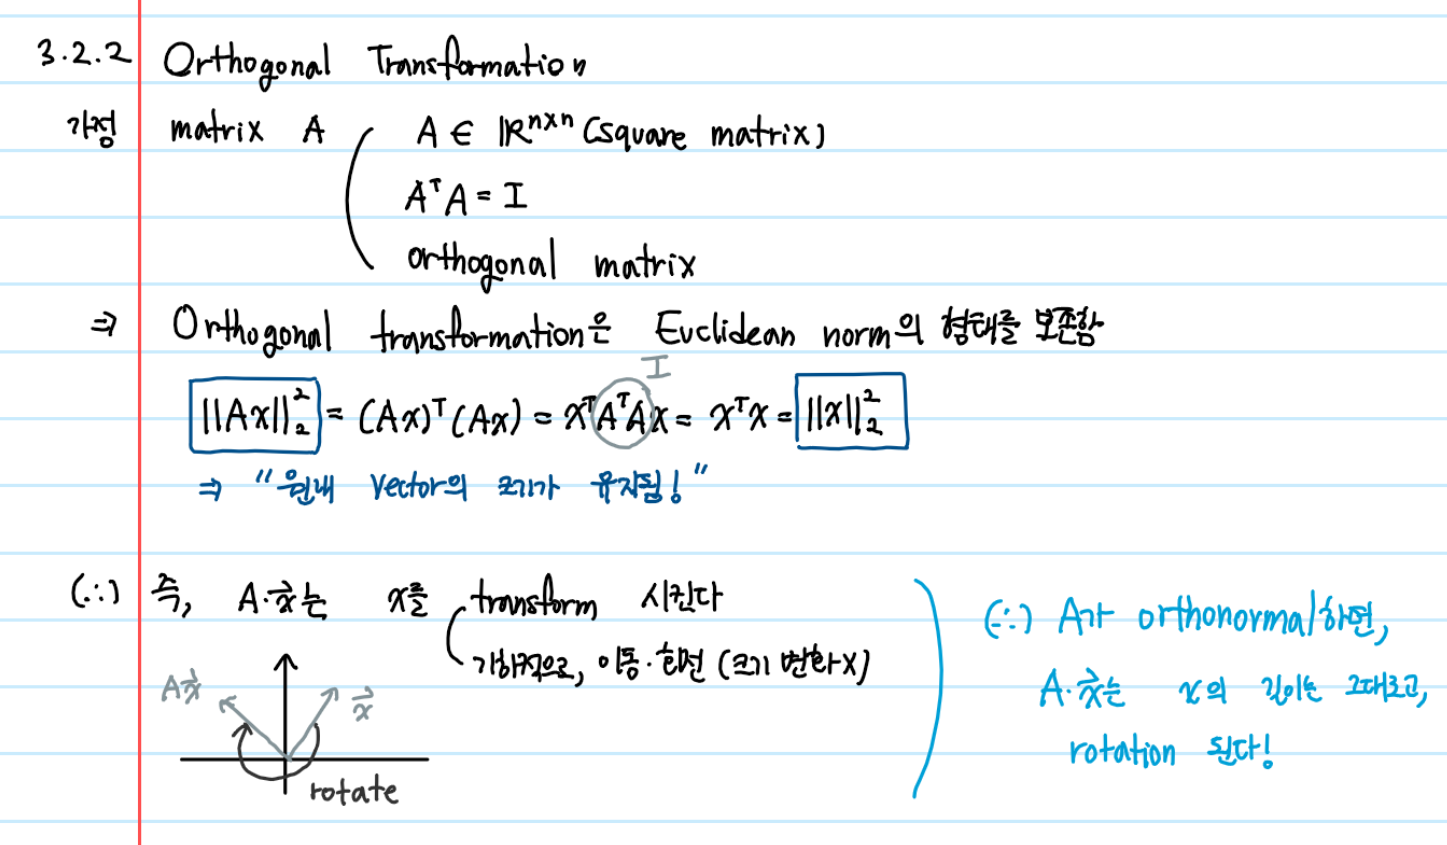 3.2.2 Orthogonal Transformation
가정 matrix A A ∈ ℝⁿˣⁿ (square matrix)
AᵀA = I
orthogonal matrix
⇒ Orthogonal transformation은 Euclidean norm의 형태를 보존함
I
||Ax||₂² = (Ax)ᵀ(Ax) = xᵀAᵀAx = xᵀx = ||x||₂²
⇒ "원래 vector의 크기가 유지됨!"
(∴) 즉, A·x⃗는 x를 transform 시킨다
기하적으로, 이동·회전 (크기 변화X)
Ax⃗
x⃗
rotate
(∴) A가 orthonormal하면,
A·x⃗는 x의 길이는 그대로고,
rotation 된다!